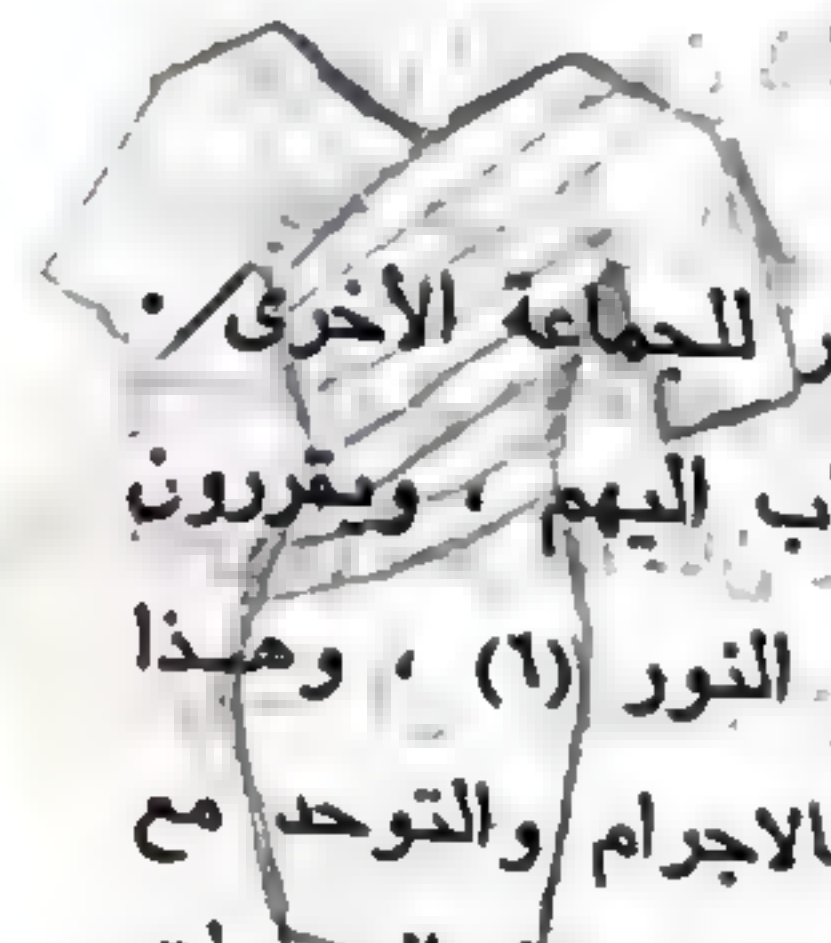 للجماعة الأخرى .
اليهم ، ويقررون
النور (٦) ، وهـذا
والتوحد مع